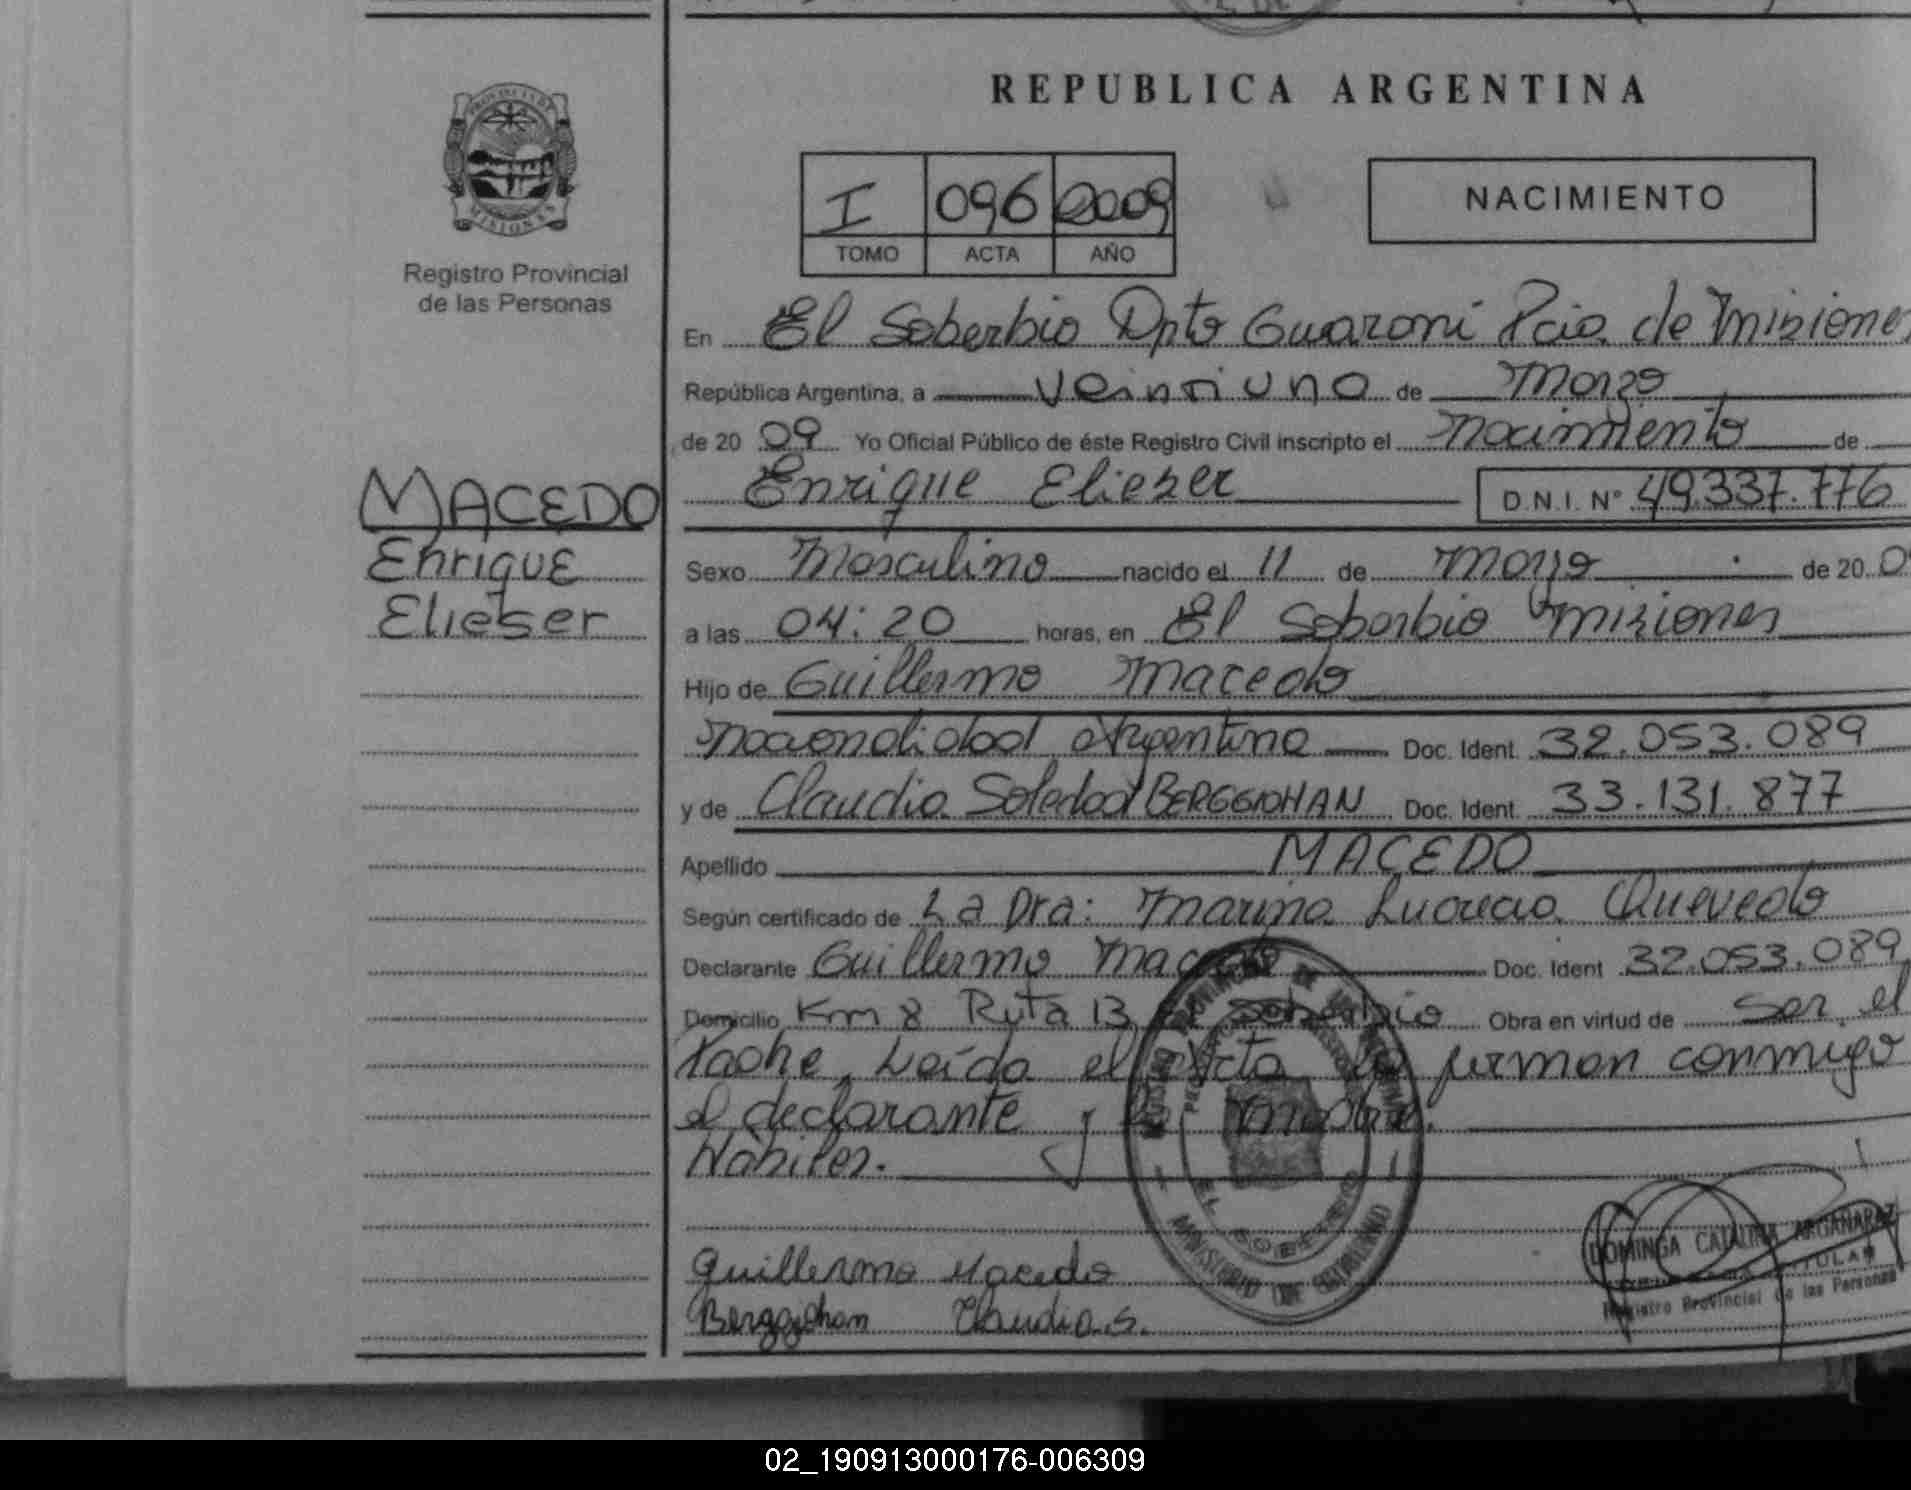 REPUBLICA ARGENTINA
PROVINCIA DE
MISIONES
Registro Provincial
de las Personas
I 096 2009
TOMO ACTA AÑO
NACIMIENTO
En El Soberbio Dpto Guaraní Pcia. de Misiones
República Argentina, a veintiuno de Marzo
de 20 09 Yo Oficial Público de éste Registro Civil inscripto el Nacimiento de
Enrique Elieser D.N.I. N° 49.337.776
MACEDO
Enrique
Elieser
Sexo Masculino nacido el 11 de Marzo de 20 09
a las 04:20 horas, en El Soberbio Misiones
Hijo de Guillermo Macedo
Nacionalidad Argentina Doc. Ident. 32.053.089
y de Claudia Soledad BERGGJOHAN Doc. Ident. 33.131.877
Apellido MACEDO
Según certificado de La Dra: Marina Lucrecia Quevedo
Declarante Guillermo Macedo Doc. Ident 32.053.089
Domicilio Km 8 Ruta 13 El Soberbio Obra en virtud de Ser el
Padre. Leída el Acta la firman conmigo
el declarante y la madre.
Hábiles.
EL SOBERBIO
MINISTERIO DE GOBIERNO
Guillermo Macedo
Berggjohan Claudia S.
DOMINGA CATALINA ARGAÑARAZ
TITULAR
Registro Provincial de las Personas
02_190913000176-006309